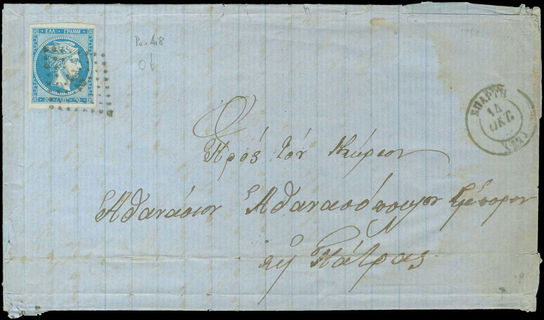 ΕΛΛ. ΓΡΑΜΜ.
ΣΠΑΡΤΗ
14
ΟΚΤ
Πρὸς τὸν Κύριον
Ἀθανάσιον Ἀθανασόπουλον ἔμπορον
εἰς Πάτρας